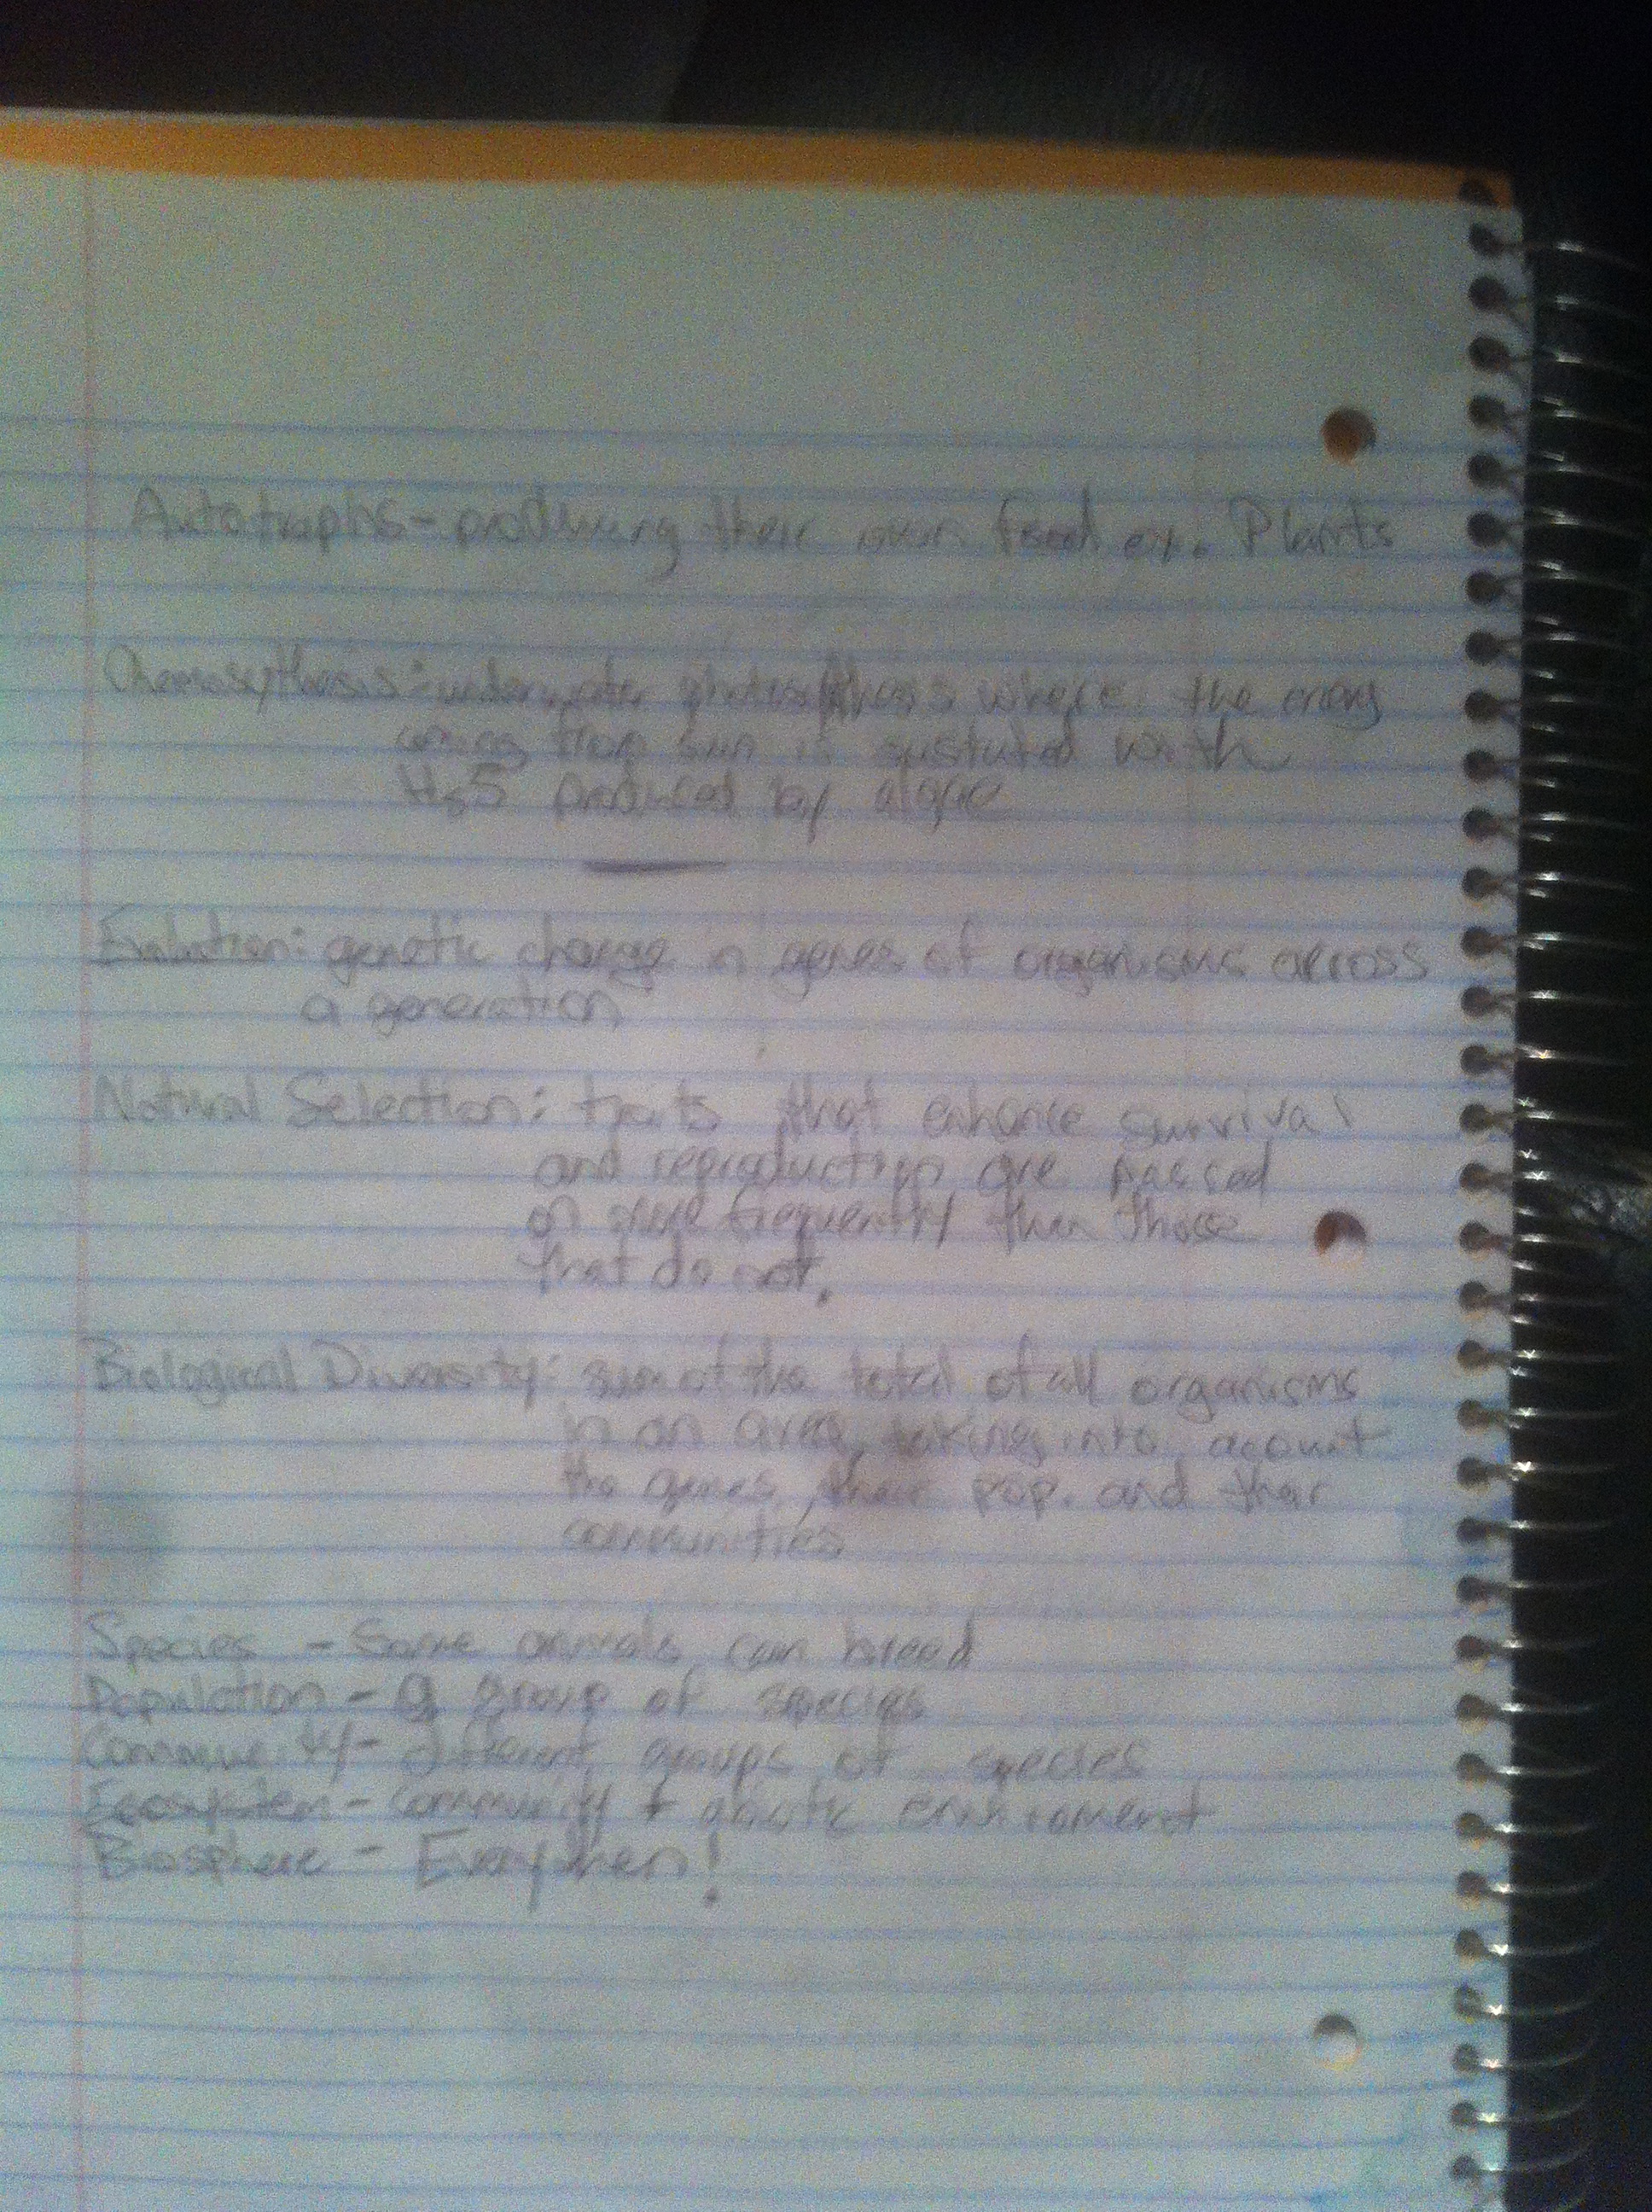 Autotrophs - producing their own food ex. Plants
Chemosythesis: underwater where the enrgy
coming from sun is sustuted with
produced by algae
Evolution: genetic change in genes of organisms across
a generation
Natural Selection: traits that enhance survival
and reproduction are passed
on more frequently than those
that do not.
Biological Diversity: sum of the total of all organisms
in an area, taking into acount
the genes, their pop. and their
communities
Species - Same animals can breed
Population - a group of species
Community - different groups of species
Ecosystem - community + enviroment
Biosphere -